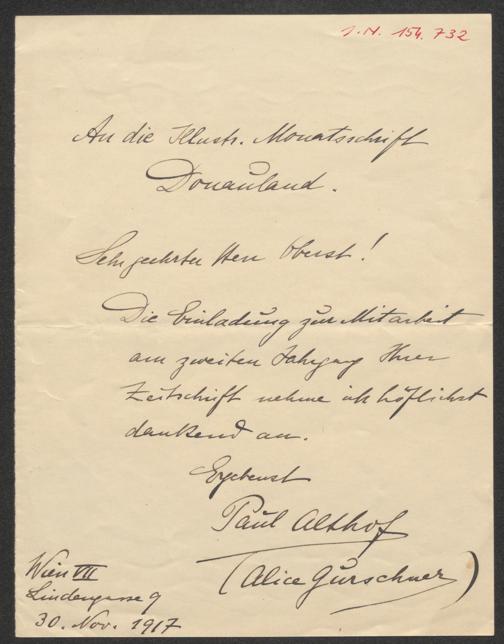 I.N. 154.732
An die Illustr. Monatsschrift
Donauland.
Sehr geehrter Herr Oberst!
Die Einladung zur Mitarbeit
am zweiten Jahrgang Ihrer
Zeitschrift nehme ich höflichst
dankend an.
Ergebenst
Paul Althof
(Alice Gurschner)
Wien VII
Lindengasse 9
30. Nov. 1917